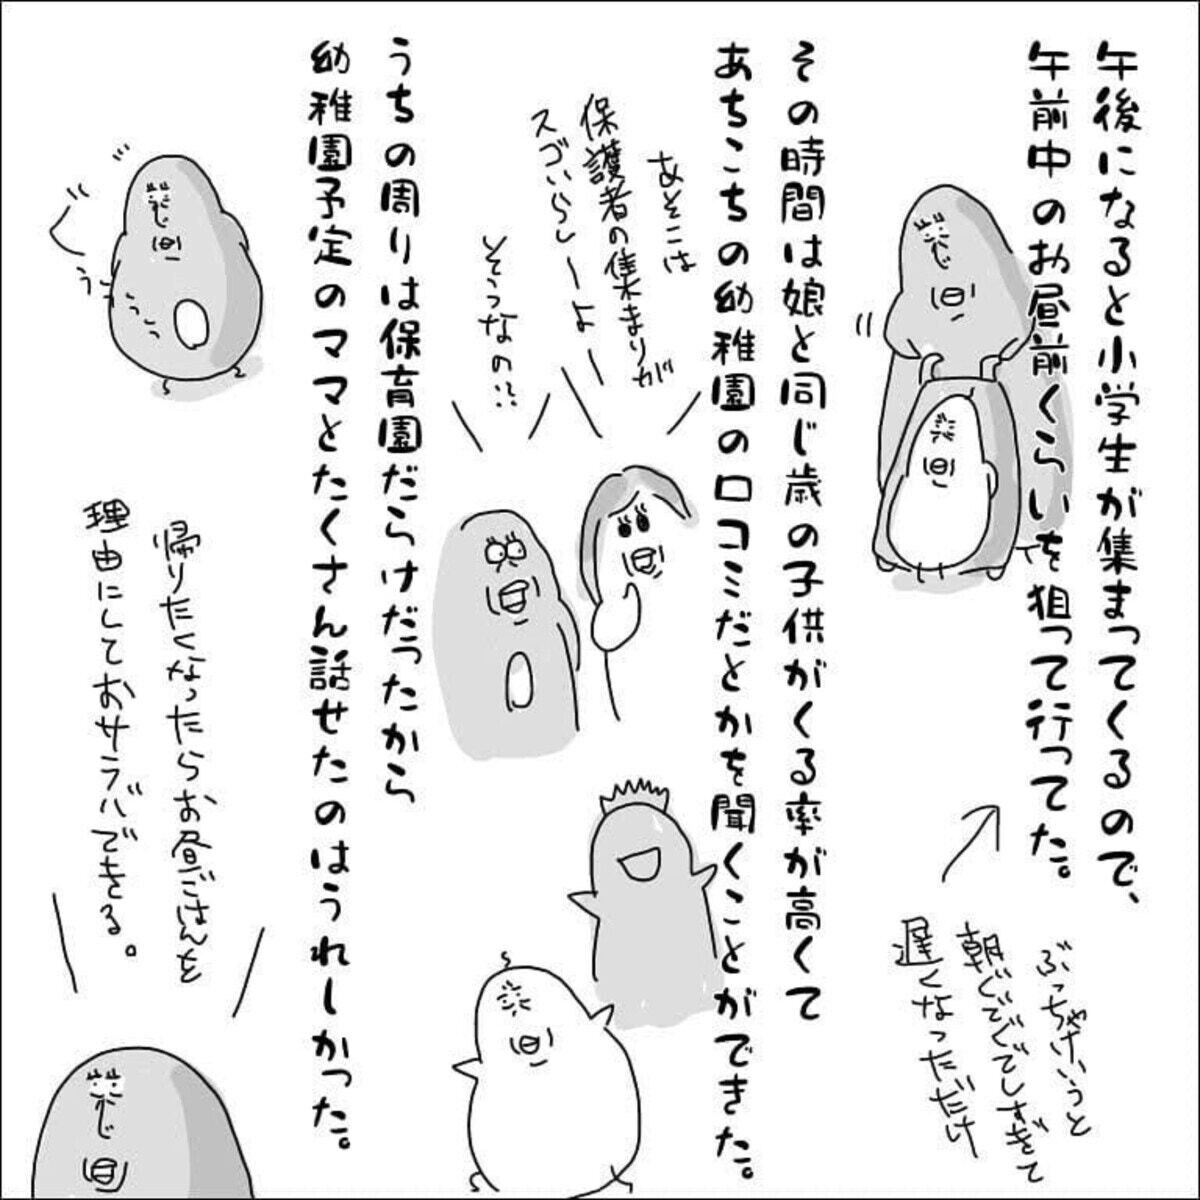 午後になると小学生が集まってくるので、
午前中のお昼前くらいを狙って行ってた。
ぶっちゃけいうと
朝ぐでぐでしすぎて
遅くなっただけ
その時間は娘と同じ歳の子供がくる率が高くて
あちこちの幼稚園の口コミだとかを聞くことができた。
あそこは
保護者の集まりが
スゴいらしーよー
そうなの!?
うちの周りは保育園だらけだったから
幼稚園予定のママとたくさん話せたのはうれしかった。
帰りたくなったらお昼ごはんを
理由にしておサラバできる。